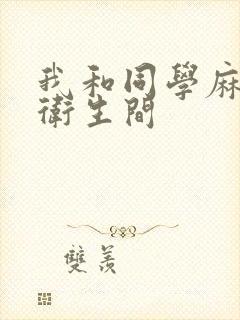 我和同學麻
衛生間
雙羨